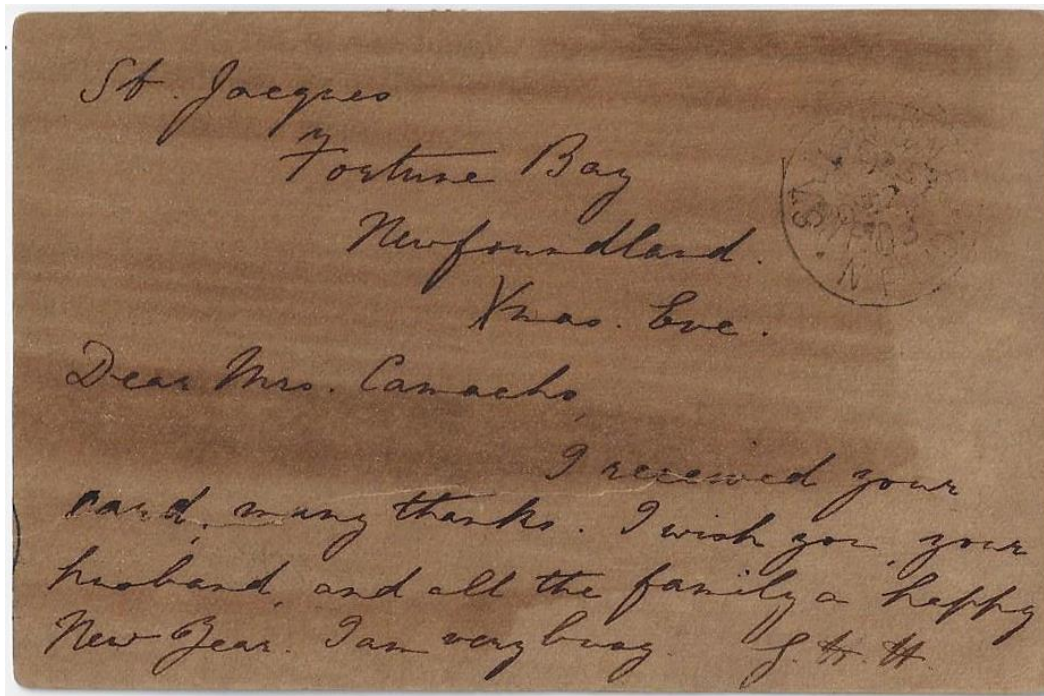 St. Jacques
Fortune Bay
Newfoundland.
Xmas. Eve.
Dear Mrs. Camacho,
I received your
card, many thanks. I wish you, your
husband, and all the family a happy
New Year. I am very busy. J. H. H.